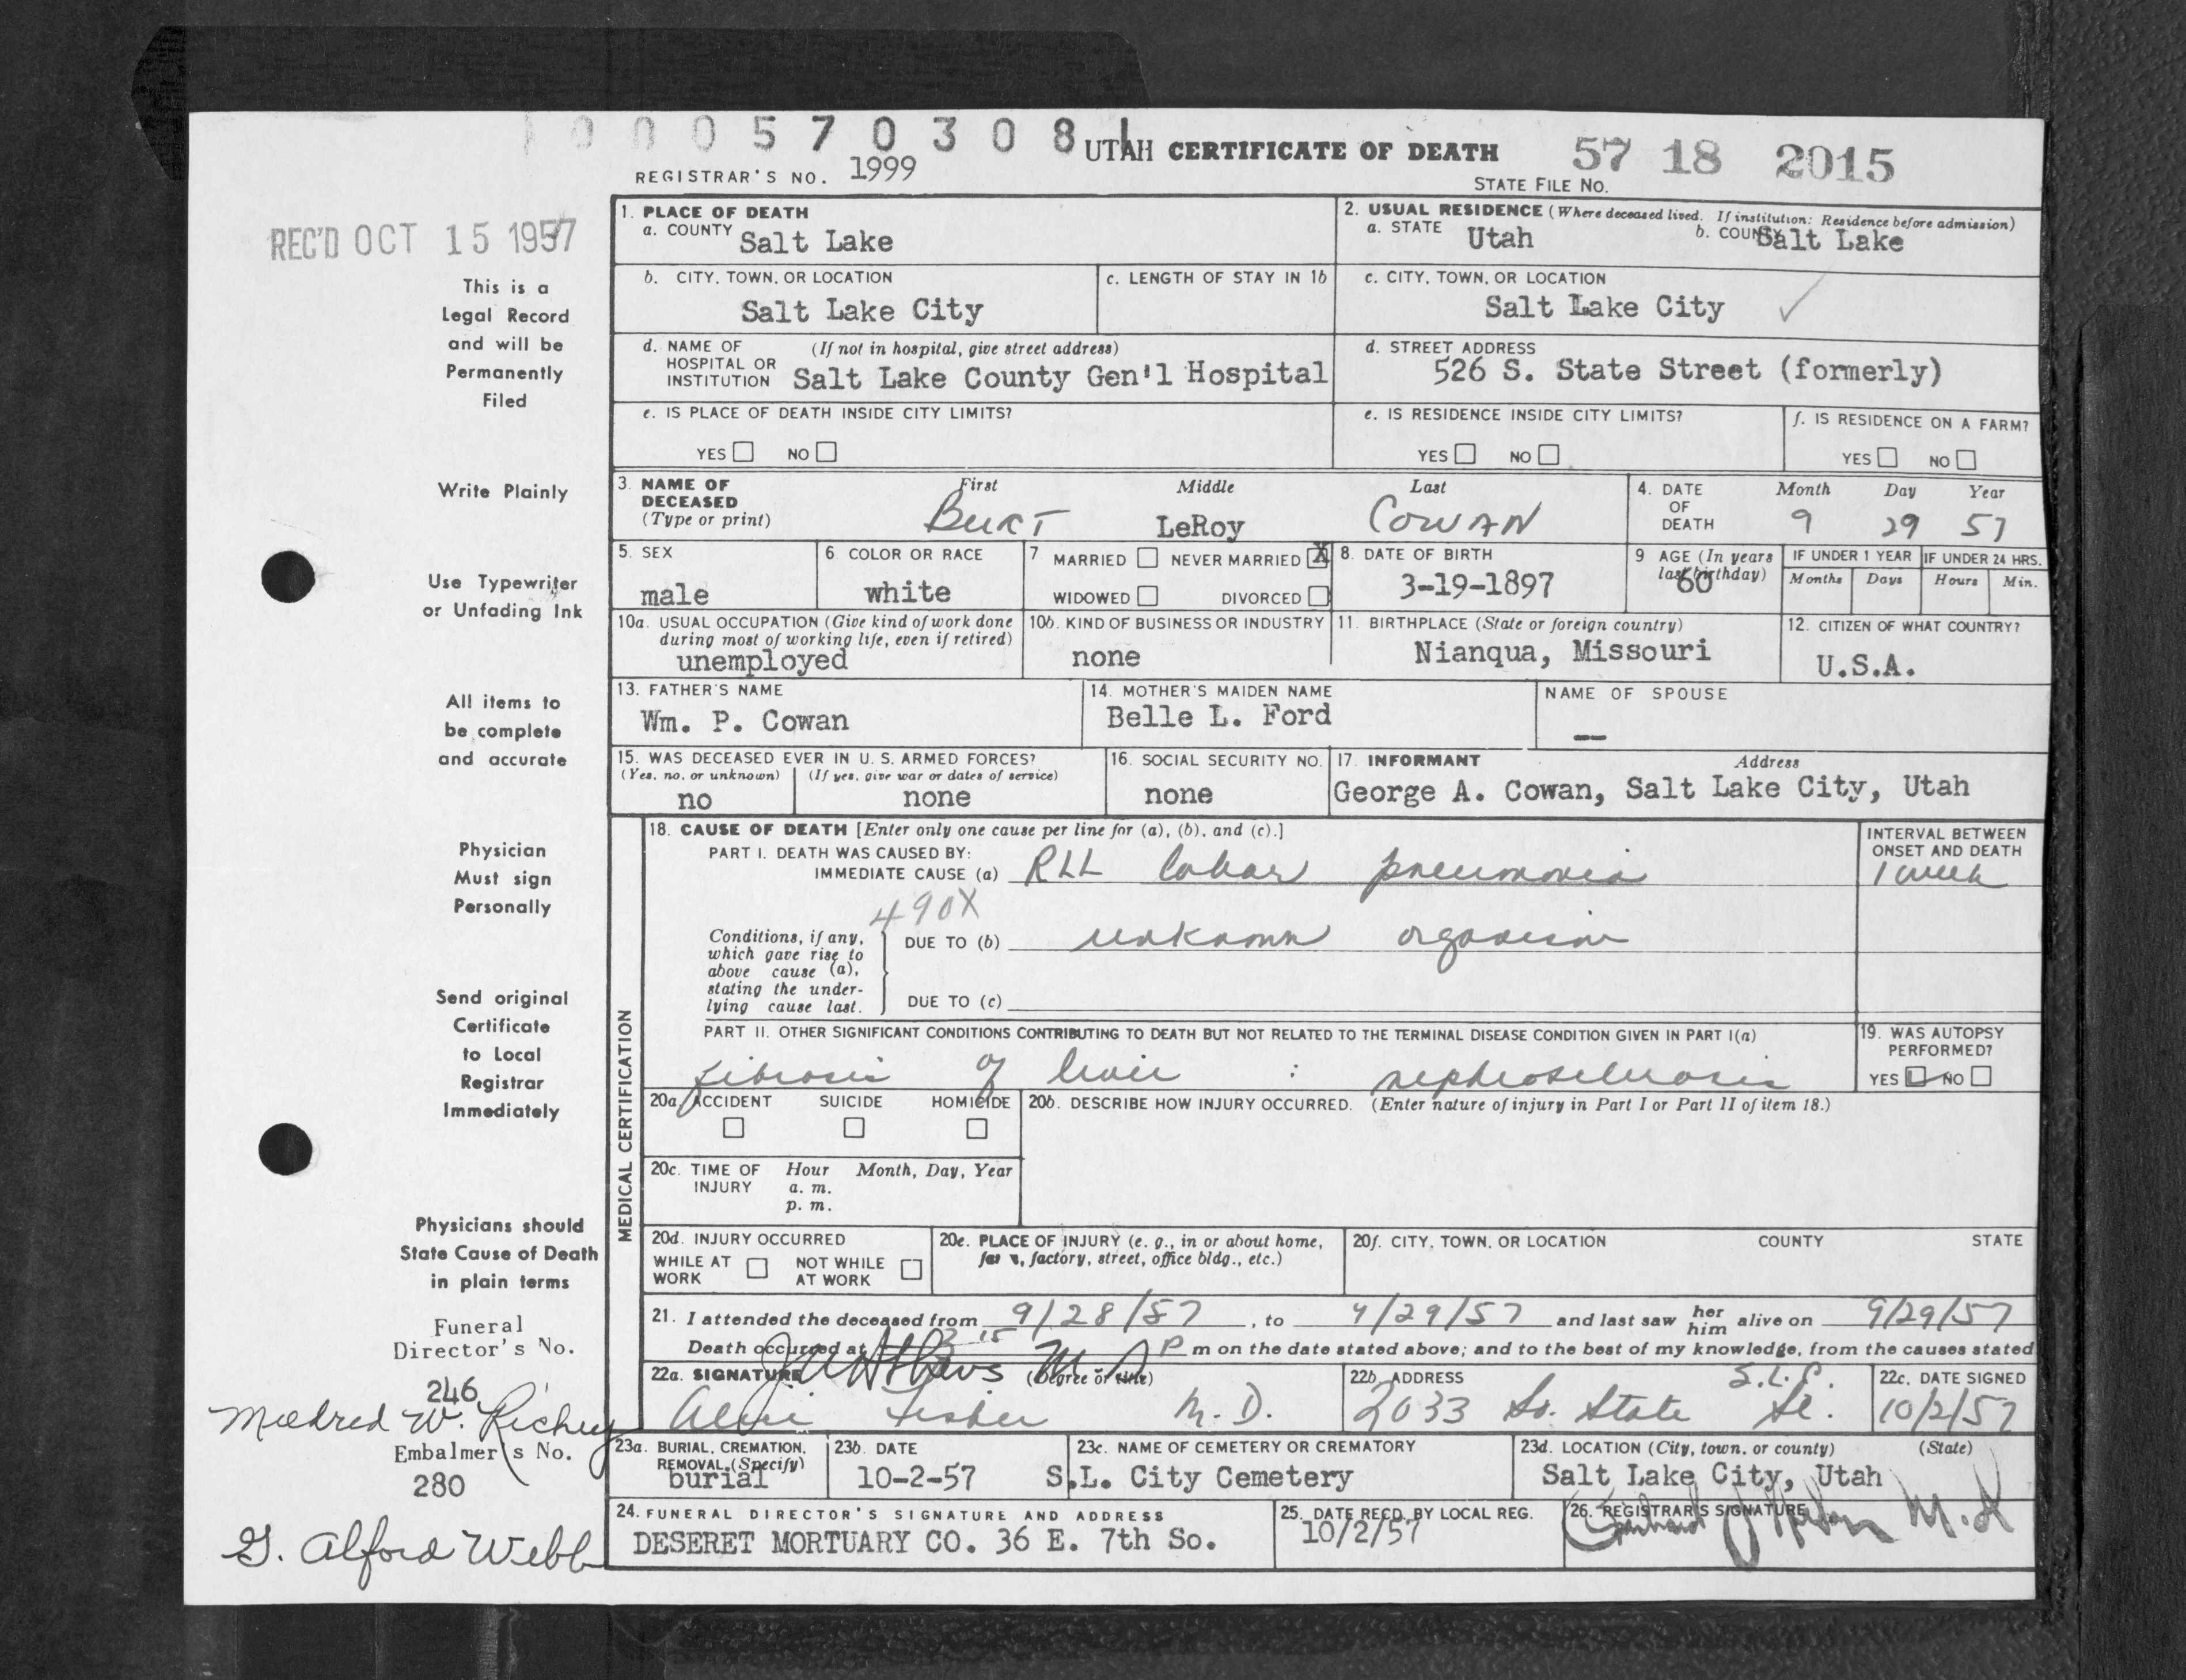 0 0 0 5 7 0 3 0 8 1 UTAH CERTIFICATE OF DEATH 57 18 2015
REGISTRAR'S NO. 1999 STATE FILE NO.
REC'D OCT 15 1957
This is a
Legal Record
and will be
Permanently
Filed
Write Plainly
Use Typewriter
or Unfading Ink
All items to
be complete
and accurate
Physician
Must sign
Personally
Send original
Certificate
to Local
Registrar
Immediately
Physicians should
State Cause of Death
in plain terms
Funeral
Director's No.
246
Mildred W. Richey
Embalmer's No.
280
G. Alford Webb
1. PLACE OF DEATH
a. COUNTY Salt Lake
2. USUAL RESIDENCE (Where deceased lived. If institution: Residence before admission)
a. STATE Utah b. COUNTY Salt Lake
b. CITY, TOWN, OR LOCATION
Salt Lake City
c. LENGTH OF STAY IN 1b
c. CITY, TOWN, OR LOCATION
Salt Lake City
d. NAME OF (If not in hospital, give street address)
HOSPITAL OR
INSTITUTION Salt Lake County Gen'l Hospital
d. STREET ADDRESS
526 S. State Street (formerly)
e. IS PLACE OF DEATH INSIDE CITY LIMITS?
YES NO
e. IS RESIDENCE INSIDE CITY LIMITS?
YES NO
f. IS RESIDENCE ON A FARM?
YES NO
3. NAME OF DECEASED (Type or print)
First Middle Last
Burt LeRoy Cowan
4. DATE OF DEATH
Month Day Year
9 29 57
5. SEX
male
6. COLOR OR RACE
white
7 MARRIED NEVER MARRIED X
WIDOWED DIVORCED
8. DATE OF BIRTH
3-19-1897
9 AGE (In years last birthday)
60
IF UNDER 1 YEAR IF UNDER 24 HRS.
Months Days Hours Min.
10a. USUAL OCCUPATION (Give kind of work done
during most of working life, even if retired)
unemployed
10b. KIND OF BUSINESS OR INDUSTRY
none
11. BIRTHPLACE (State or foreign country)
Nianqua, Missouri
12. CITIZEN OF WHAT COUNTRY?
U.S.A.
13. FATHER'S NAME
Wm. P. Cowan
14. MOTHER'S MAIDEN NAME
Belle L. Ford
NAME OF SPOUSE
—
15. WAS DECEASED EVER IN U. S. ARMED FORCES?
(Yes, no, or unknown) (If yes, give war or dates of service)
no none
16. SOCIAL SECURITY NO.
none
17. INFORMANT Address
George A. Cowan, Salt Lake City, Utah
MEDICAL CERTIFICATION
18. CAUSE OF DEATH [Enter only one cause per line for (a), (b), and (c).]
PART I. DEATH WAS CAUSED BY:
IMMEDIATE CAUSE (a) RLL lobar pneumonia
INTERVAL BETWEEN
ONSET AND DEATH
1 week
490X
Conditions, if any,
which gave rise to
above cause (a),
stating the under-
lying cause last.
DUE TO (b) unknown organism
DUE TO (c)
PART II. OTHER SIGNIFICANT CONDITIONS CONTRIBUTING TO DEATH BUT NOT RELATED TO THE TERMINAL DISEASE CONDITION GIVEN IN PART I(a)
fibrosis of liver : nephrosclerosis
19. WAS AUTOPSY
PERFORMED?
YES NO
20a. ACCIDENT SUICIDE HOMICIDE
20b. DESCRIBE HOW INJURY OCCURRED. (Enter nature of injury in Part I or Part II of item 18.)
20c. TIME OF INJURY Hour Month, Day, Year
a. m.
p. m.
20d. INJURY OCCURRED
WHILE AT WORK NOT WHILE AT WORK
20e. PLACE OF INJURY (e. g., in or about home,
factory, street, office bldg., etc.)
20f. CITY, TOWN, OR LOCATION COUNTY STATE
21. I attended the deceased from 9/28/57, to 9/29/57 and last saw her him alive on 9/29/57
Death occurred at 3 15 P m on the date stated above; and to the best of my knowledge, from the causes stated
22a. SIGNATURE (Degree or title)
Fisher M. D.
22b. ADDRESS
2033 So. State St. S.L.C.
22c. DATE SIGNED
10/2/57
23a. BURIAL, CREMATION,
REMOVAL (Specify)
burial
23b. DATE
10-2-57
23c. NAME OF CEMETERY OR CREMATORY
S.L. City Cemetery
23d. LOCATION (City, town, or county) (State)
Salt Lake City, Utah
24. FUNERAL DIRECTOR'S SIGNATURE AND ADDRESS
DESERET MORTUARY CO. 36 E. 7th So.
25. DATE RECD. BY LOCAL REG.
10/2/57
26. REGISTRAR'S SIGNATURE
M.D